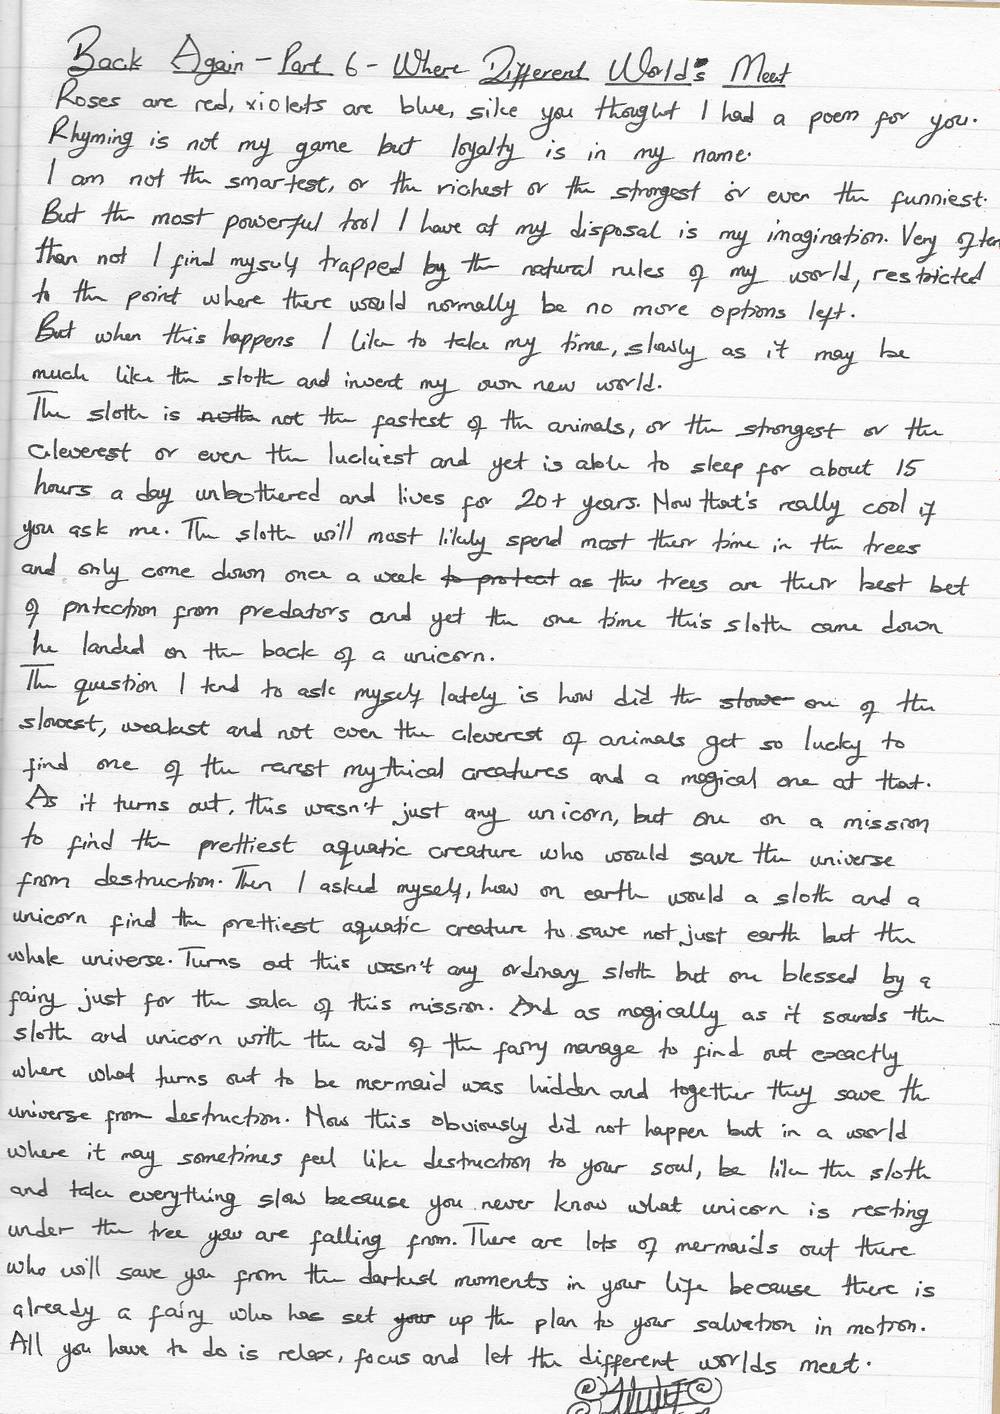 Back Again - Part 6 - Where Different World's Meet
Roses are red, violets are blue, sike you thought I had a poem for you.
Rhyming is not my game but loyalty is in my name.
I am not the smartest, or the richest or the strongest or even the funniest.
But the most powerful tool I have at my disposal is my imagination. Very often
than not I find myself trapped by the natural rules of my world, restricted
to the point where there would normally be no more options left.
But when this happens I like to take my time, slowly as it may be
much like the sloth and invent my own new world.
The sloth is not the fastest of the animals, or the strongest or the
cleverest or even the luckiest and yet is able to sleep for about 15
hours a day unbothered and lives for 20+ years. Now that's really cool if
you ask me. The sloth will most likely spend most their time in the trees
and only come down once a week to protect as the trees are their best bet
of protection from predators and yet the one time this sloth came down
he landed on the back of a unicorn.
The question I tend to ask myself lately is how did the one of the
slowest, weakest and not even the cleverest of animals get so lucky to
find one of the rarest mythical creatures and a magical one at that.
As it turns out, this wasn't just any unicorn, but one on a mission
to find the prettiest aquatic creature who would save the universe
from destruction. Then I asked myself, how on earth would a sloth and a
unicorn find the prettiest aquatic creature to save not just earth but the
whole universe. Turns out this wasn't any ordinary sloth but one blessed by a
fairy just for the sake of this mission. And as magically as it sounds the
sloth and unicorn with the aid of the fairy manage to find out exactly
where what turns out to be mermaid was hidden and together they save the
universe from destruction. Now this obviously did not happen but in a world
where it may sometimes feel like destruction to your soul, be like the sloth
and take everything slow because you never know what unicorn is resting
under the tree you are falling from. There are lots of mermaids out there
who will save you from the darkest moments in your life because there is
already a fairy who has set your up the plan to your salvation in motion.
All you have to do is relax, focus and let the different worlds meet.